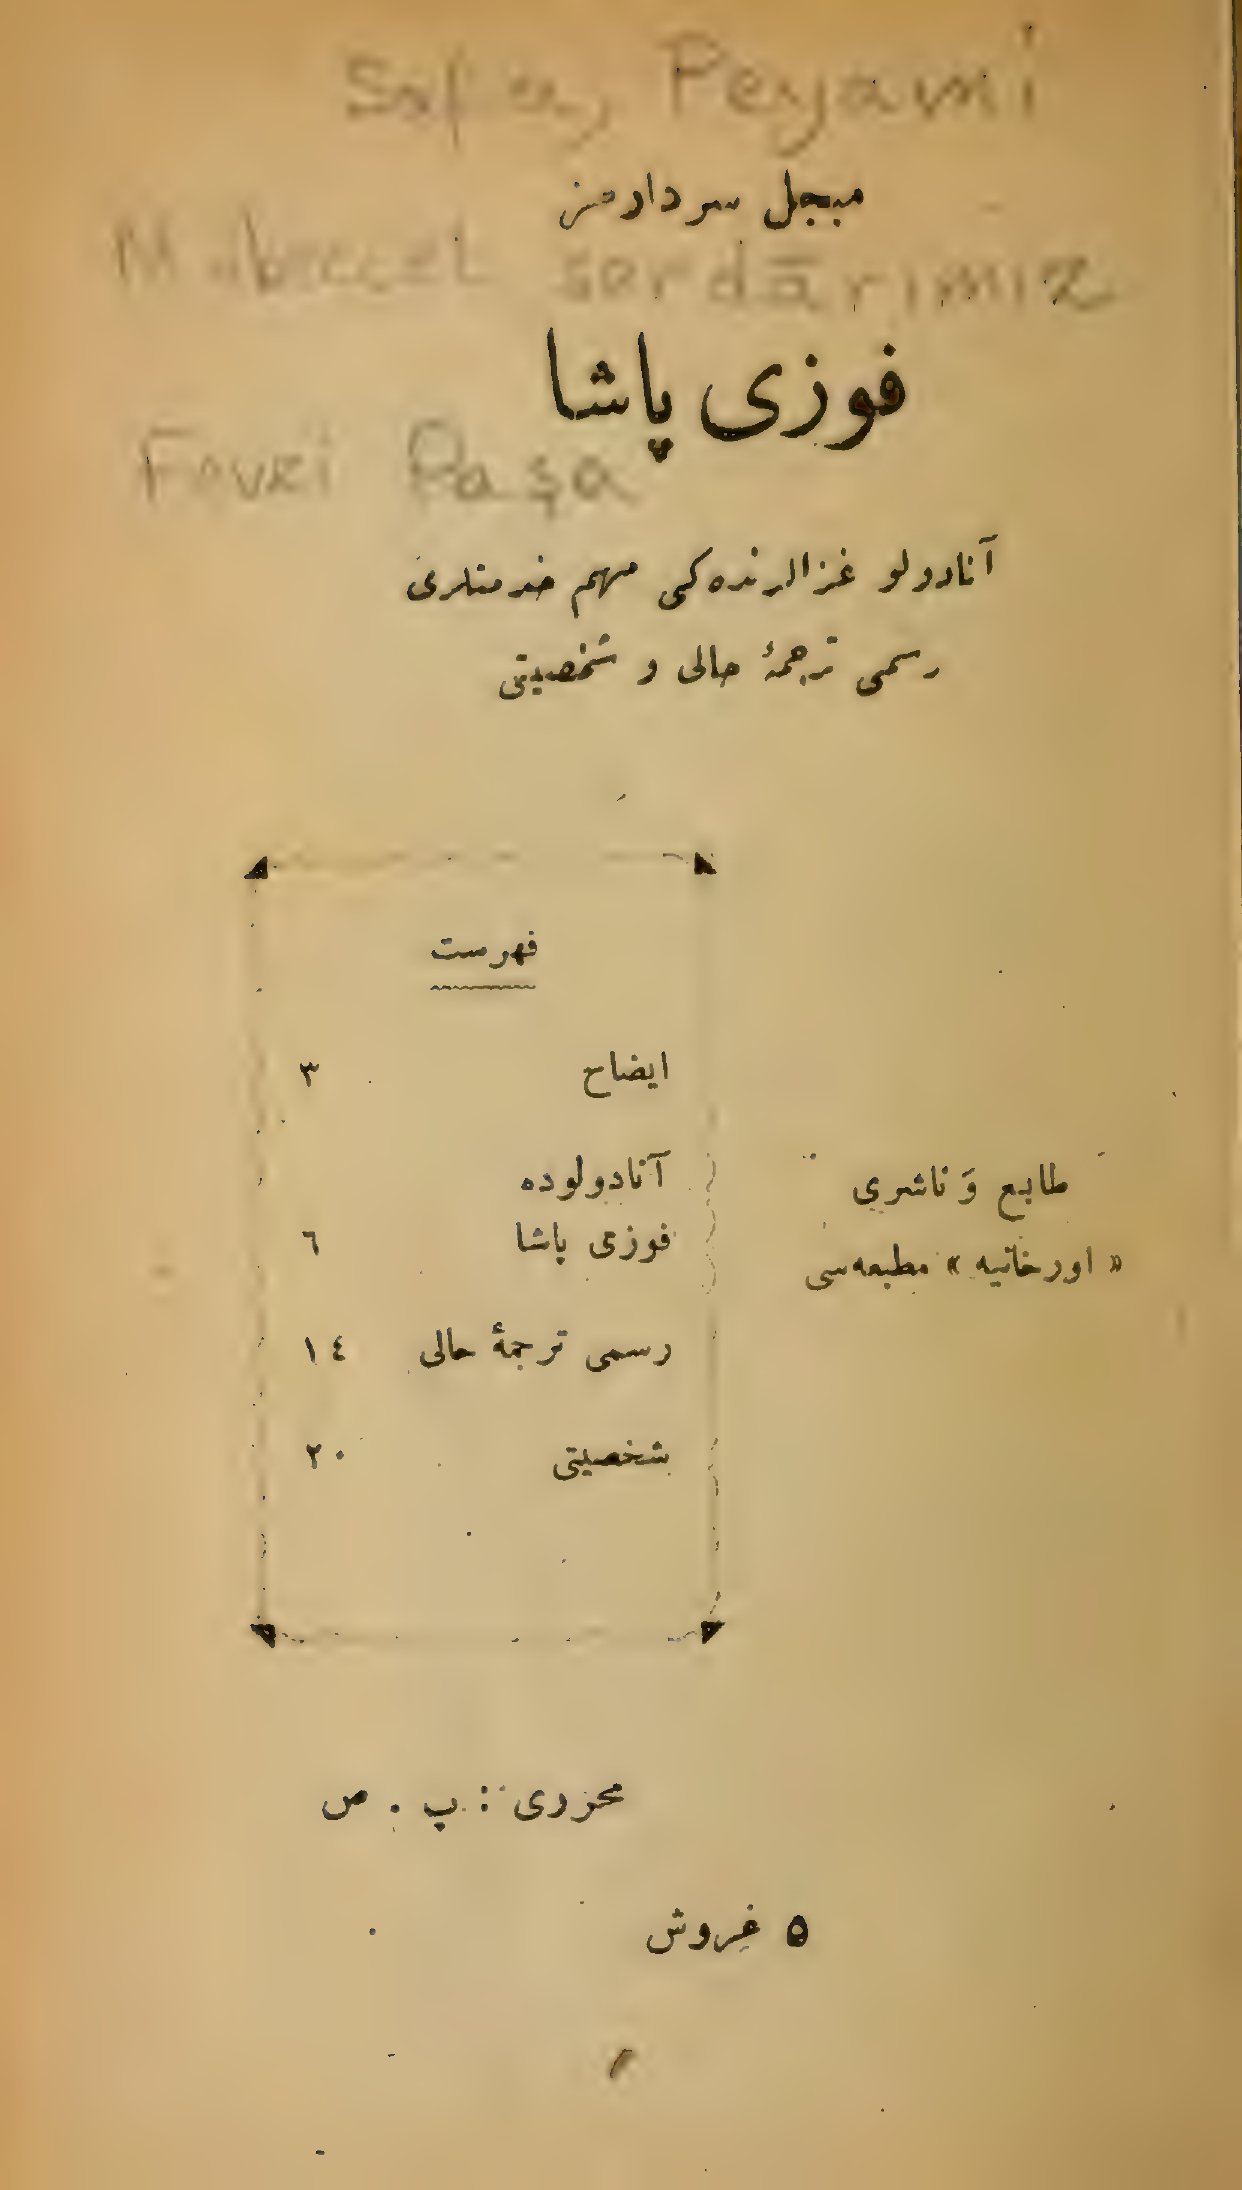 Safa, Peyami
مبجل سردارمز
Mübeccel serdārımız
فوزی پاشا
Fevzi Paşa
آنادولو غزالرنده‌کی مهم خدمتلری
رسمی ترجمهٔ حالی و شخصیتی
فهرست
ایضاح ٣
آنادولوده
فوزی پاشا ٦
رسمی ترجمهٔ حالی ١٤
شخصیتی ٢٠
طابع و ناشری
« اورخانیه » مطبعه‌سی
محرری : پ . ص
٥ غروش